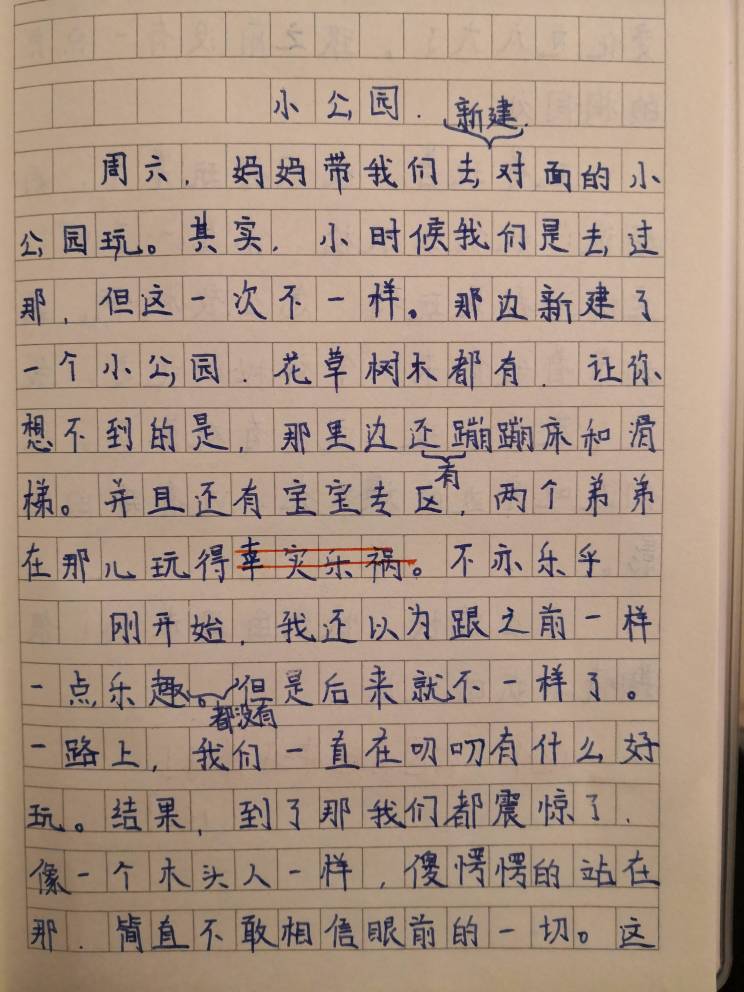 小公园.
新建.
周六，妈妈带我们去对面的小
公园玩。其实，小时候我们是去过
那，但这一次不一样。那边新建了
一个小公园.花草树木都有.让你
想不到的是，那里边还蹦蹦床和滑
有
梯。并且还有宝宝专区，两个弟弟
在那儿玩得幸灾乐祸。不亦乐乎
刚开始，我还以为跟之前一样
一点乐趣。但是后来就不一样了。
都没有
一路上，我们一直在叨叨有什么好
玩。结果，到了那我们都震惊了.
像一个木头人一样，傻愣愣的站在
那.简直不敢相信眼前的一切。这